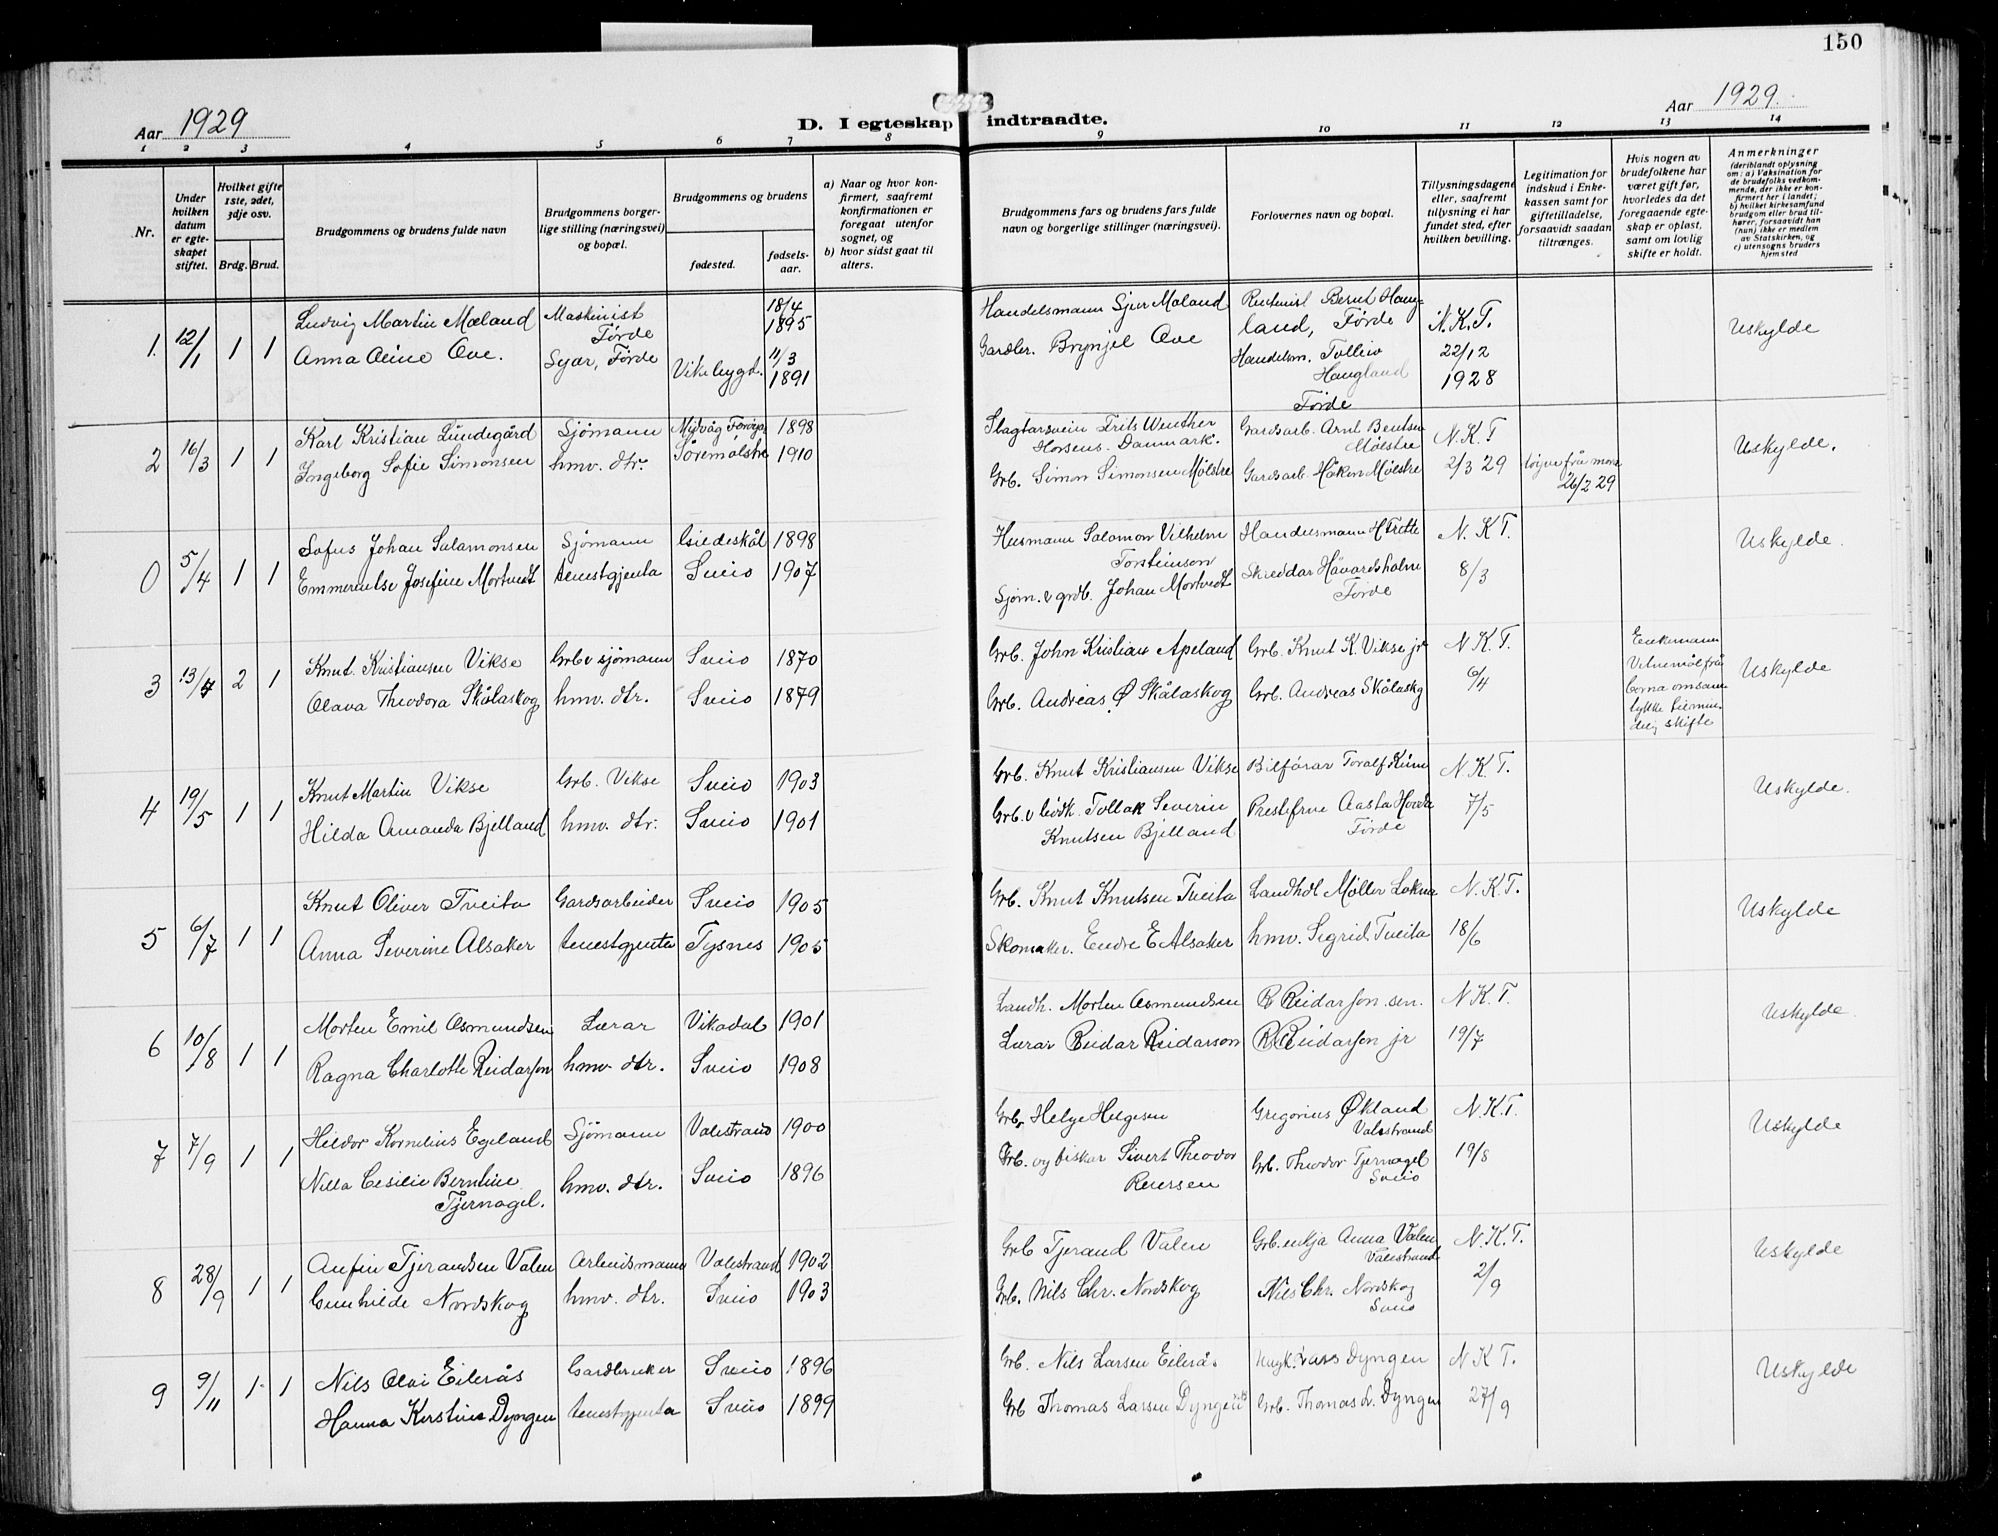 150
Aar 1929
D. I egteskap indtraadte.
Aar 1929.
1 2 3 4 5 6 7 8 9 10 11 12 13 14
Nr.
Under hvilken datum er egteskapet stiftet.
Hvilket gifte 1ste, 2det, 3dje osv.
Brdg. Brud.
Brudgommens og brudens fulde navn
Brudgommens borgerlige stilling (næringsvei) og bopæl.
Brudgommens og brudens
fødested.
fødselsaar.
a) Naar og hvor konfirmert, saafremt konfirmationen er foregaat utenfor sognet, og
b) hvor sidst gaat til alters.
Brudgommens fars og brudens fars fulde navn og borgerlige stillinger (næringsvei).
Forlovernes navn og bopæl.
Tillysningsdagene eller, saafremt tillysning ei har fundet sted, efter hvilken bevilling.
Legitimation for indskud i Enkekassen samt for giftetilladelse, forsaavidt saadan tiltrænges.
Hvis nogen av brudefolkene har været gift før, hvorledes da det foregaaende egteskap er opløst, samt om lovlig skifte er holdt.
Anmerkninger
(deriblandt oplysning om: a) Vaksination for de brudefolks vedkommende, der ikke er konfirmert her i landet;
b) hvilket kirkesamfund brudgom eller brud tilhører, forsaavidt han (hun) ikke er medlem av Statskirken, og
c) utensogns bruders hjemsted
1. 12/1 1 1 Ludvig Martin Mæland Maskinist Førde 18/4 1895 Handelsmann Sjur Mæland Bernt Haugland, Førde N.K.T. Uskylde
Anna Oline Ove. Syer, Førde Vikebygd. 11/3 1891 Gardbr. Brynjel Ove Handelsm. Tolleiv Haugland Førde 22/12 1928
2 16/3 1 1 Karl Kristian Lundegård Sjømann 1898 Slagtarsvein Frits Wenther Horsens. Danmark. Gardsarb. Arnt Bentsen Mølstre N.K.T Uskylde.
Ingeborg Sofie Simonsen hmv. dtr. Søremølstre 1910 Grb. Simon Simonsen Mølstre Gardsarb Håkon Mølstre 2/3 29 løyve frå mora 26/2 29
0 5/4 1 1 Sofus Johan Salamonsen Sjømann Gildeskål 1898 Husmann Salomon Vilhelm Torsteinson Handelsmann H Trette N.K.T. Uskylde.
Emmerentse Josefine Mortvedt tenestgjenta Sveio 1907 Sjøm. & grdb. Johan Mortvedt Skreddar Håvardsholm Førde 8/3
3 13/4 2 1 Knut Kristiansen Vikse Grb v sjømann Sveio 1870 Grb. John Kristian Apeland Grb. Knut K. Vikse jr N.K.T. Enkemann Vitnemål frå borna om samtykke til skifte Uskylde
Olava Theodora Skålaskog hmv. dtr. Sveio 1879 Grb. Andreas Ø Skålaskog Grb. Andreas Skålaskg 6/4
4 19/5 1 1 Knut Martin Vikse Grb. Vikse Sveio 1903 Grb. Knut Kristiansen Vikse Bilførar Toralf N.K.T. Uskylde.
Hilda Amanda Bjelland hmv. dtr. Sveio 1901 Tollak Severin Knutsen Bjelland Prestefrue Aasta Førde 7/5
5 6/7 1 1 Knut Oliver Tveita Gardsarbeider Sveio 1905 Grb. Knut Knutsen Tveita Landhdl Møller Lokna N.K.T. Uskylde
Anna Severine Alsaker tenestgjenta Tysnes 1905 Skomaker. Endre E Alsaker hmv. Sigrid Tveita 18/6
6 10/8 1 1 Morten Emil Osmundsen Lærar Vikadal 1901 Landh. Morten Osmundsen R Reidarson sen. N.K.T. Uskylde.
Ragna Charlotte Reidarson hmv. dtr. Sveio 1908 Lærar Reidar Reidarson R. Reidarson jr 19/7
7 7/9 1 1 Hildor Kornelius Egeland Sjømann Valestrand 1900 Grb. Helge Helgesen Gregorius Økland Valestrand N.K.T. Uskylde
Nilla Cesilie Berntine Tjernagel. hmv. dtr. Sveio 1896 Grb. og fiskar Sivert Theodor Reiersen Grb. Theodor Tjernagel Sveio 19/8
8 28/9 1 1 Anfin Tjerandsen Valen Arbeidsmann Valestrand 1902 Grb Tjerand Valen Grb.enkja Anna Valen Valestrand N.K.T. Uskylde
Gunhilde Nordskog hmv. dtr. Sveio 1903 Grb. Nils Chr. Nordskog Nils Chr. Nordskog Sveio 2/9
9 9/11 1 1 Nils Olai Eilerås Gardbruker Sveio 1896 Grb. Nils Larsen Eilerås Lars Dyngen N.K.T. Uskylde
Hanna Kerstine Dyngen tenestgjenta Sveio 1899 Grb Thomas Larsen Dyngen Grb. Thomas L. Dyngen 27/9